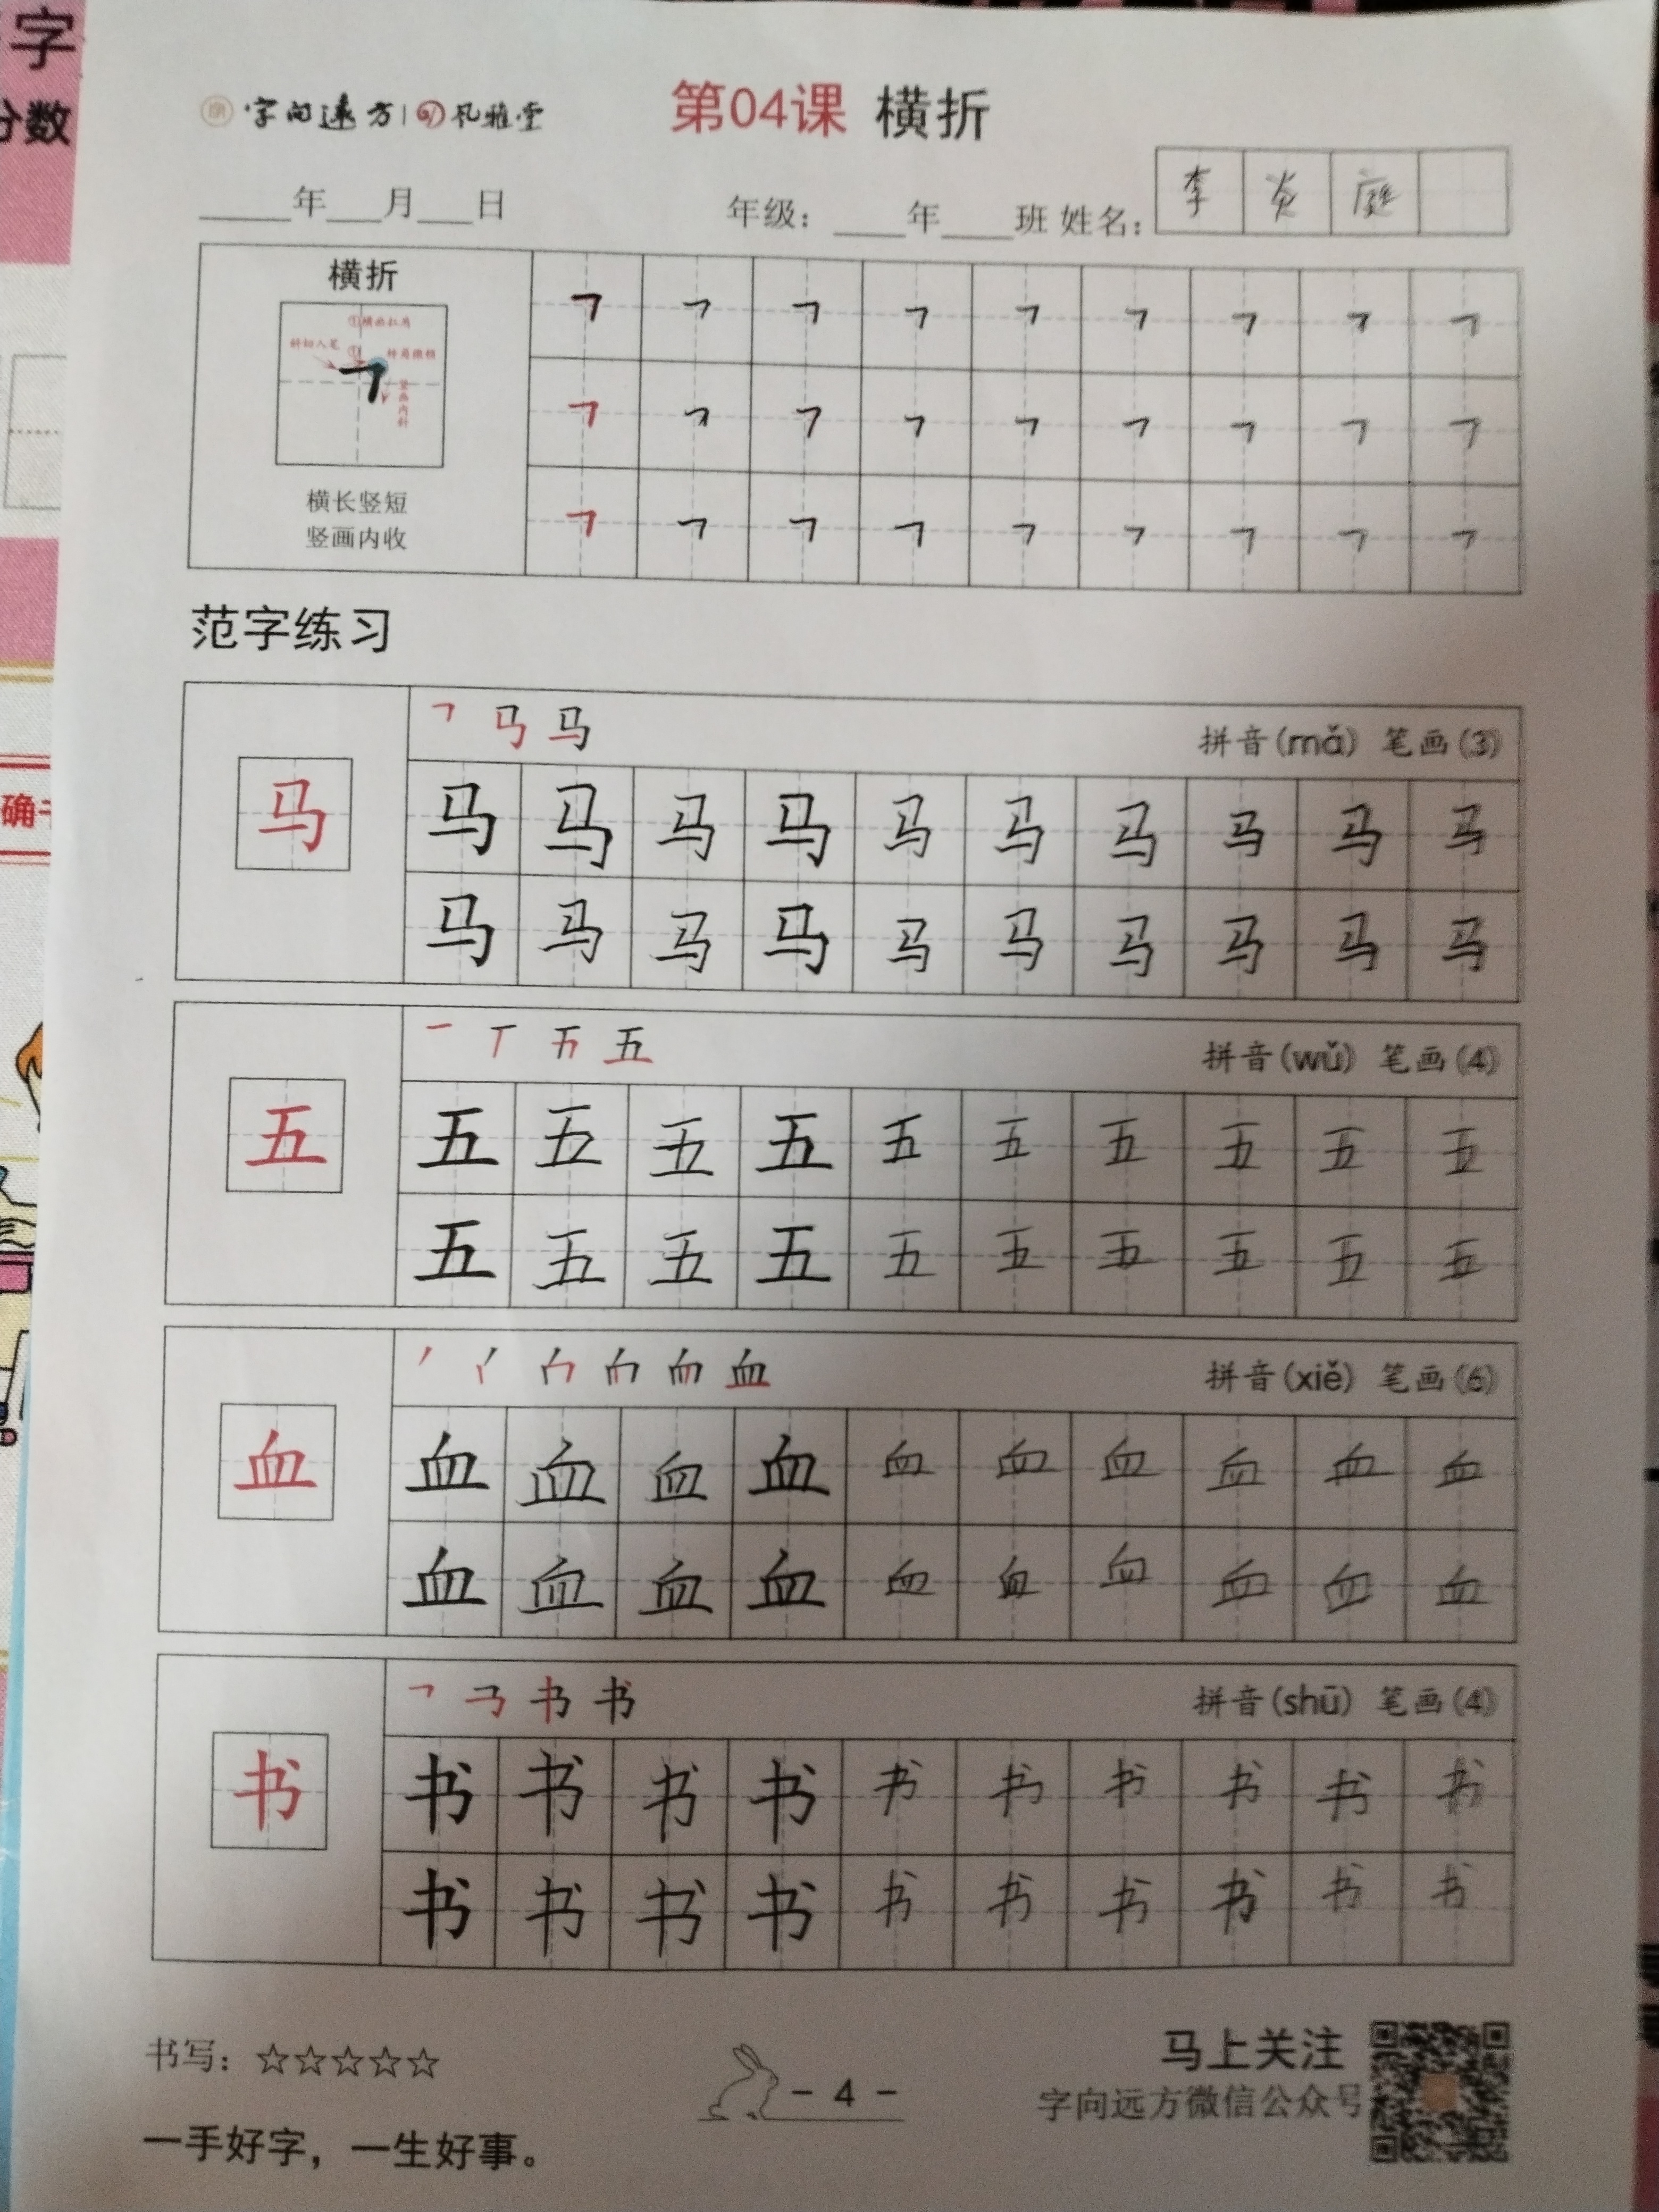 字
分数
确
字向远方 风雅堂
第04课 横折
年 月 日 年级： 年 班 姓名：李 炎 庭
横折
①横画扛肩
斜切入笔 ① 转角微顿
竖画内斜
横长竖短
竖画内收
㇕ ㇕ ㇕ ㇕ ㇕ ㇕ ㇕ ㇕ ㇕
㇕ ㇕ ㇕ ㇕ ㇕ ㇕ ㇕ ㇕ ㇕
㇕ ㇕ ㇕ ㇕ ㇕ ㇕ ㇕ ㇕ ㇕
范字练习
马 拼音(mǎ) 笔画(3)
马
马 马 马 马 马 马 马 马 马 马
马 马 马 马 马 马 马 马 马 马
五 拼音(wǔ) 笔画(4)
五
五 五 五 五 五 五 五 五 五 五
五 五 五 五 五 五 五 五 五 五
血 拼音(xiě) 笔画(6)
血
血 血 血 血 血 血 血 血 血 血
血 血 血 血 血 血 血 血 血 血
书 拼音(shū) 笔画(4)
书
书 书 书 书 书 书 书 书 书 书
书 书 书 书 书 书 书 书 书 书
书写：☆☆☆☆☆
- 4 -
马上关注
字向远方微信公众号
一手好字，一生好事。